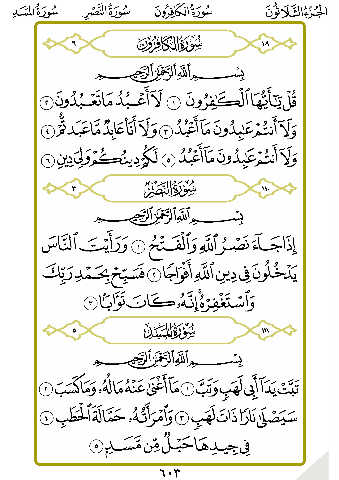 الجزء الثلاثون سورة الكافرون سورة النصر سورة المسد
١٠٩ سورة الكافرون ٦
بِسْمِ ٱللَّهِ ٱلرَّحْمَٰنِ ٱلرَّحِيمِ
قُلْ يَٰٓأَيُّهَا ٱلْكَٰفِرُونَ ١ لَآ أَعْبُدُ مَا تَعْبُدُونَ ٢
وَلَآ أَنتُمْ عَٰبِدُونَ مَآ أَعْبُدُ ٣ وَلَآ أَنَا۠ عَابِدٌ مَّا عَبَدتُّمْ ٤
وَلَآ أَنتُمْ عَٰبِدُونَ مَآ أَعْبُدُ ٥ لَكُمْ دِينُكُمْ وَلِىَ دِينِ ٦
١١٠ سورة النصر ٣
بِسْمِ ٱللَّهِ ٱلرَّحْمَٰنِ ٱلرَّحِيمِ
إِذَا جَآءَ نَصْرُ ٱللَّهِ وَٱلْفَتْحُ ١ وَرَأَيْتَ ٱلنَّاسَ
يَدْخُلُونَ فِى دِينِ ٱللَّهِ أَفْوَاجًا ٢ فَسَبِّحْ بِحَمْدِ رَبِّكَ
وَٱسْتَغْفِرْهُ إِنَّهُۥ كَانَ تَوَّابًۢا ٣
١١١ سورة المسد ٥
بِسْمِ ٱللَّهِ ٱلرَّحْمَٰنِ ٱلرَّحِيمِ
تَبَّتْ يَدَآ أَبِى لَهَبٍ وَتَبَّ ١ مَآ أَغْنَىٰ عَنْهُ مَالُهُۥ وَمَا كَسَبَ ٢
سَيَصْلَىٰ نَارًا ذَاتَ لَهَبٍ ٣ وَٱمْرَأَتُهُۥ حَمَّالَةَ ٱلْحَطَبِ ٤
فِى جِيدِهَا حَبْلٌ مِّن مَّسَدٍۭ ٥
٦٠٣